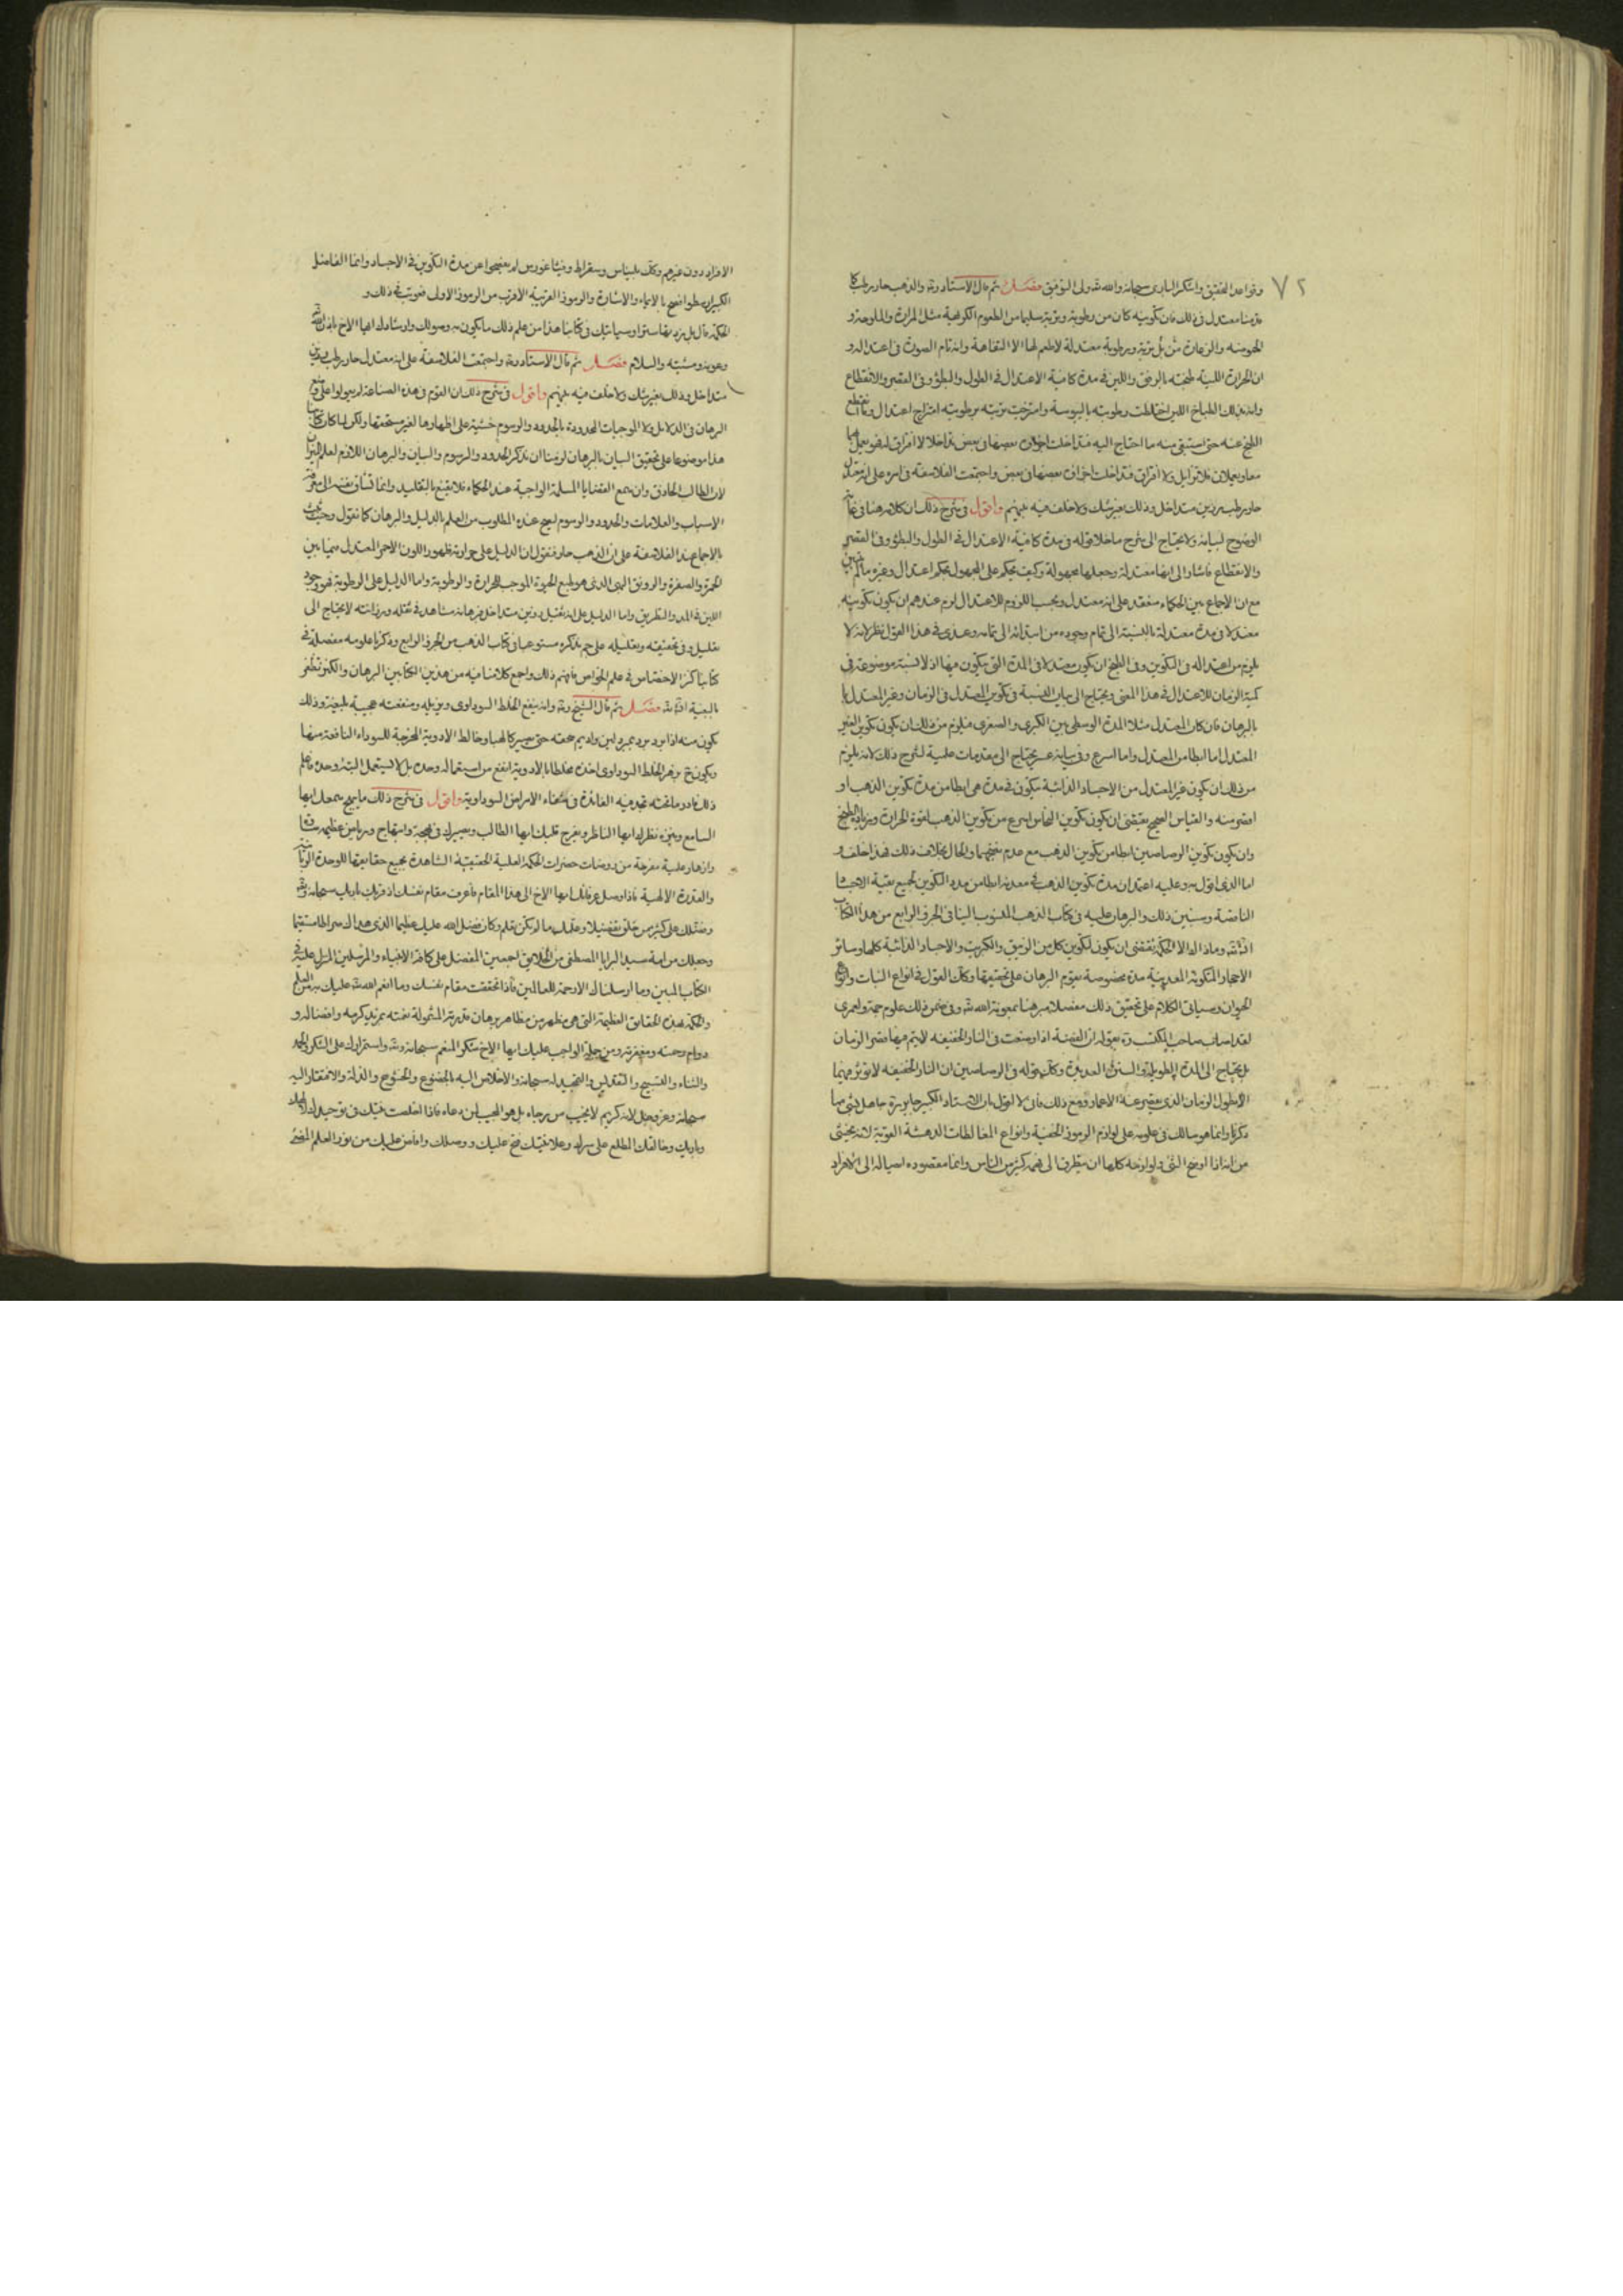 ٧٢
وقواعد التحقيق واشكر البارى سبحانه والله ولى التوفيق فصل ثم قال الاستاد والذهب حار رطب كما
قدمنا معتدل فى ذلك فان تكوينه كان من رطوبة وتربة سليما من الطعوم الكونية مثل المرارة والملوحة و
الحموضة والزعارة من بل تربة ورطوبة معتدلة لا طعم لها الا التفاهة وانه تام الصورة فى اعتداله و
ان الحرارة اللينة طبخته بالرفق واللين فى مدة كافية الاعتدال فى الطول والبطؤ وفى القصر والانقطاع
وانه بذلك الطباخ اللين اختلطت رطوبته باليبوسة وامتزجت تربته برطوبته امتزاج اعتدال
الطبخ عنه حتى استقى منه ما احتاج اليه فتداخلت اجزاؤه بعضها فى بعض تداخلا لا افتراق
معا ويعملان فلا تزايل ولا افتراق فتداخلت اجزاؤه بعضها فى بعض واجتمعت الفلاسفة فى امره على انه معتدل
حار رطب رزين متداخل وذلك بغير شك ولا خلف فيه بينهم واقول فى شرح ذلك ان كلامه هنا فى غاية
الوضوح لبيانه ولا يحتاج الى شرح ما خلا قوله فى مدة كافية الاعتدال فى الطول والبطؤ وفى القصر
والانقطاع فاشار الى انها معتدلة وجعلها مجهولة وكيف يحكم على المجهول بحكم اعتدال وغيره
مع ان الاجماع بين الحكماء منعقد على انه معتدل وبحسب اللزوم للاعتدال لزم عندهم ان يكون تكوينه
معتدلا فى مدة معتدلة بالنسبة الى تمام وجوده من ابتدائه الى تمامه وعندى فى هذا القول نظر لانه لا
يلزم من اعتداله فى التكوين وفى الطبخ ان يكون معتدلا فى المدة التى يتكون فيها اذ لا نسبة موضوعة فى
كمية الزمان للاعتدال فى هذا المعنى ويحتاج الى بيان النسبة فى تكوين المعتدل فى الزمان وغير المعتدل
بالبرهان فان كان المعتدل مثلا المدة الوسطى بين الكبرى والصغرى فيلزم من ذلك ان يكون تكوين الغير
المعتدل اما ابطا من المعتدل واما اسرع وفى بيانه عسر يحتاج الى مقدمات علمية لشرح ذلك لانه يلزم
من ذلك ان يكون غير المعتدل من الاجساد الذائبة يتكون فى مدة هى ابطا من مدة تكوين الذهب او
اقصر منه والقياس الصحيح يقتضى ان يكون تكوين النحاس اسرع من تكوين الذهب لقوة الحرارة وزيادة الطبخ
وان يكون تكوين الرصاصين ابطا من تكوين الذهب مع عدم نضجهما والحال بخلاف ذلك فهذا خلف و
اما الذى اقول به وعليه اعتمد ان مدة تكوين الذهب فى معدنه ابطا من مدد التكوين لجميع بقية الاجساد
الناقصة وسنبين ذلك والبرهان عليه فى كتاب الذهب المنسوب الينا فى الجزء الرابع من هذا الكتاب
الحكمة تقتضى ان يكون لتكوين كل من الزيبق والكبريت والاجساد الذائبة كلها وسائر
الاحجار المتكونة المعدنية مدة مخصوصة يقوم البرهان على تحقيقها وكذلك القول فى انواع النبات وانواع
الحيوان وسياتى الكلام على تحقيق ذلك مفصلا مبرهنا بمعونة الله وفى ضمن ذلك علوم جمة ولعمرى
لقد اصاب صاحب المكتسب بقوله ان الفضة اذا وضعت فى النار الخفيفة لا يتم فيها قصر الزمان
بل يحتاج الى المدة الطويلة والسنين العديدة وكذلك قوله فى الرصاصين ان النار الخفيفة لا تؤثر فيهما
الا بطول الزمان الذى يقصر عنه الاعمار ومع ذلك فانى لا اقول بان الاستاد الكبير جابر جاهل بشئ مما
ذكرنا وانما هو سالك فى علومه على لوازم الرموز الخفية وانواع المغالطات المدهشة القوية لانه يخشى
من انه اذا اوضح الشئ ولوازمه كلها ان يتطرق الى فهمه كثير من الناس وانما مقصوده ايصاله الى الافراد
الافراد دون غيرهم وكذلك بليناس وسقراط وفيثاغورس لم يفصحوا عن مدة التكوين فى الاجساد وانما الفاضل
الكبير ارسطو افصح بالايماء والاشارة والرموز القريبة الاقرب من الرموز الاول فعوتب فى ذلك و
سياتيك فى كتابنا هذا من علم ذلك ما يكون به وصولك وارشادك ايها الاخ باذن الله
وعونه ومشيته والسلام فصل ثم قال الاستاد واجتمعت الفلاسفة على انه معتدل حار رطب رزين
متداخل وذلك بغير شك ولا خلف فيه بينهم واقول فى شرح ذلك ان القوم فى هذه الصناعة لم يعولوا على وضع
البرهان فى الدلايل ولا الموجبات المحدودة بالحدود والرسوم خشية على اظهارها لغير مستحقها ولكن لما كان كتابنا
هذا موضوعا على تحقيق البيان بالبرهان لزمنا ان نذكر الحدود والرسوم والبيان والبرهان اللازم لعلم الميزان
لان الطالب الحاذق وان سمع القضايا المسلمة الواجبة عند الحكماء فلا يقنع بالتقليد وانما تشتاق نفسه الى معرفة
الاسباب والعلامات والحدود والرسوم ليصح عنده المطلوب من العلم بالدليل والبرهان كما نقول وحيث ثبت
بالاجماع عند الفلاسفة على ان الذهب حار فنقول ان الدليل على حرارته ظهور اللون الاحمر المعتدل فيما بين
الحمرة والصفرة والرونق البهى الذى هو طبع الحيوة الموجب للحرارة والرطوبة واما الدليل على الرطوبة فهو وجود
اللين فى المد والتطريق واما الدليل على انه ثقيل رزين متداخل فبرهانه مشاهد فى ثقله ورزانته لا يحتاج الى
تعليل وفى تحقيقه وتعليله على ذكره مستوعبا فى كتاب الذهب من الجزء الرابع وذكرنا علومه مفصلة فى
كتابنا كنز الاختصاص فى علم الخواص فافهم ذلك واجمع كلامنا فيه من هذين الكتابين البرهان والكنز تظفر
بالبغية فصل ثم قال الشيخ وانه ينفع الخلط السوداوى ويزيله ومنفعته عجيبة بليغة وذلك
يكون منه اذا برد برد بمبرد لين واديم سحقه حتى يصير كالهبا وخالط الادوية المخرجة للسوداء النافعة منها
ويكون اخذه مخلطا بالادوية انفع من استعماله وحده بل لا يستعمل البتة وحده فاعلم
ذلك تجد فيه الفائدة فى شفاء الامراض السوداوية واقول فى شرح ذلك ما يبهج سمعك ايها
السامع وينزه نظرك ايها الناظر ويفرح قلبك ايها الطالب ويصيرك فى بهجة وابتهاج ورياض عظيمة
وازهار علمية مفرحة من روضات حضرات الحكمة العلية الحقيقية الشاهدة بجميع حقايقها للوحدة الربانية
والقدرة الالهية فاذا وصل عرفانك ايها الاخ الى هذا المقام فاعرف مقام نفسك اذ قربك باريك سبحانه
وفضلك على كثير ممن خلق تفضيلا وعلمك ما لم تكن تعلم وكان فضل الله عليك عظيما الذى هداك صراطا مستقيما
وجعلك من امة سيد البرايا المصطفى من الخلايق اجمعين المفضل على كافة الانبياء والمرسلين المنزل عليه فى
الكتاب المبين وما ارسلناك الا رحمة للعالمين فاذا تحققت مقام نفسك وما انعم الله عليك به من العلم
والحكمة بهذه الحقايق العظيمة التى هى مظهر من مظاهر برهان قدرته المشمولة نعمته بمزيد كرمه وافضاله و
دوام رحمته ومغفرته ومن جملة الواجب عليك ايها الاخ شكر المنعم سبحانه واستمرارك على الشكر والحمد
والثناء والتسبيح والتقديس والتمجيد له سبحانه والاخلاص اليه بالخضوع والخشوع والذلة والافتقار اليه
سبحانه وعز وجل لانه كريم لا يخيب من رجاه بل هو المجيب لمن دعاه فاذا اخلصت نيتك فى توحيد
باريك وخالقك المطلع على سرك وعلانيتك فتح عليك ووصلك وافاض عليك من نور العلم